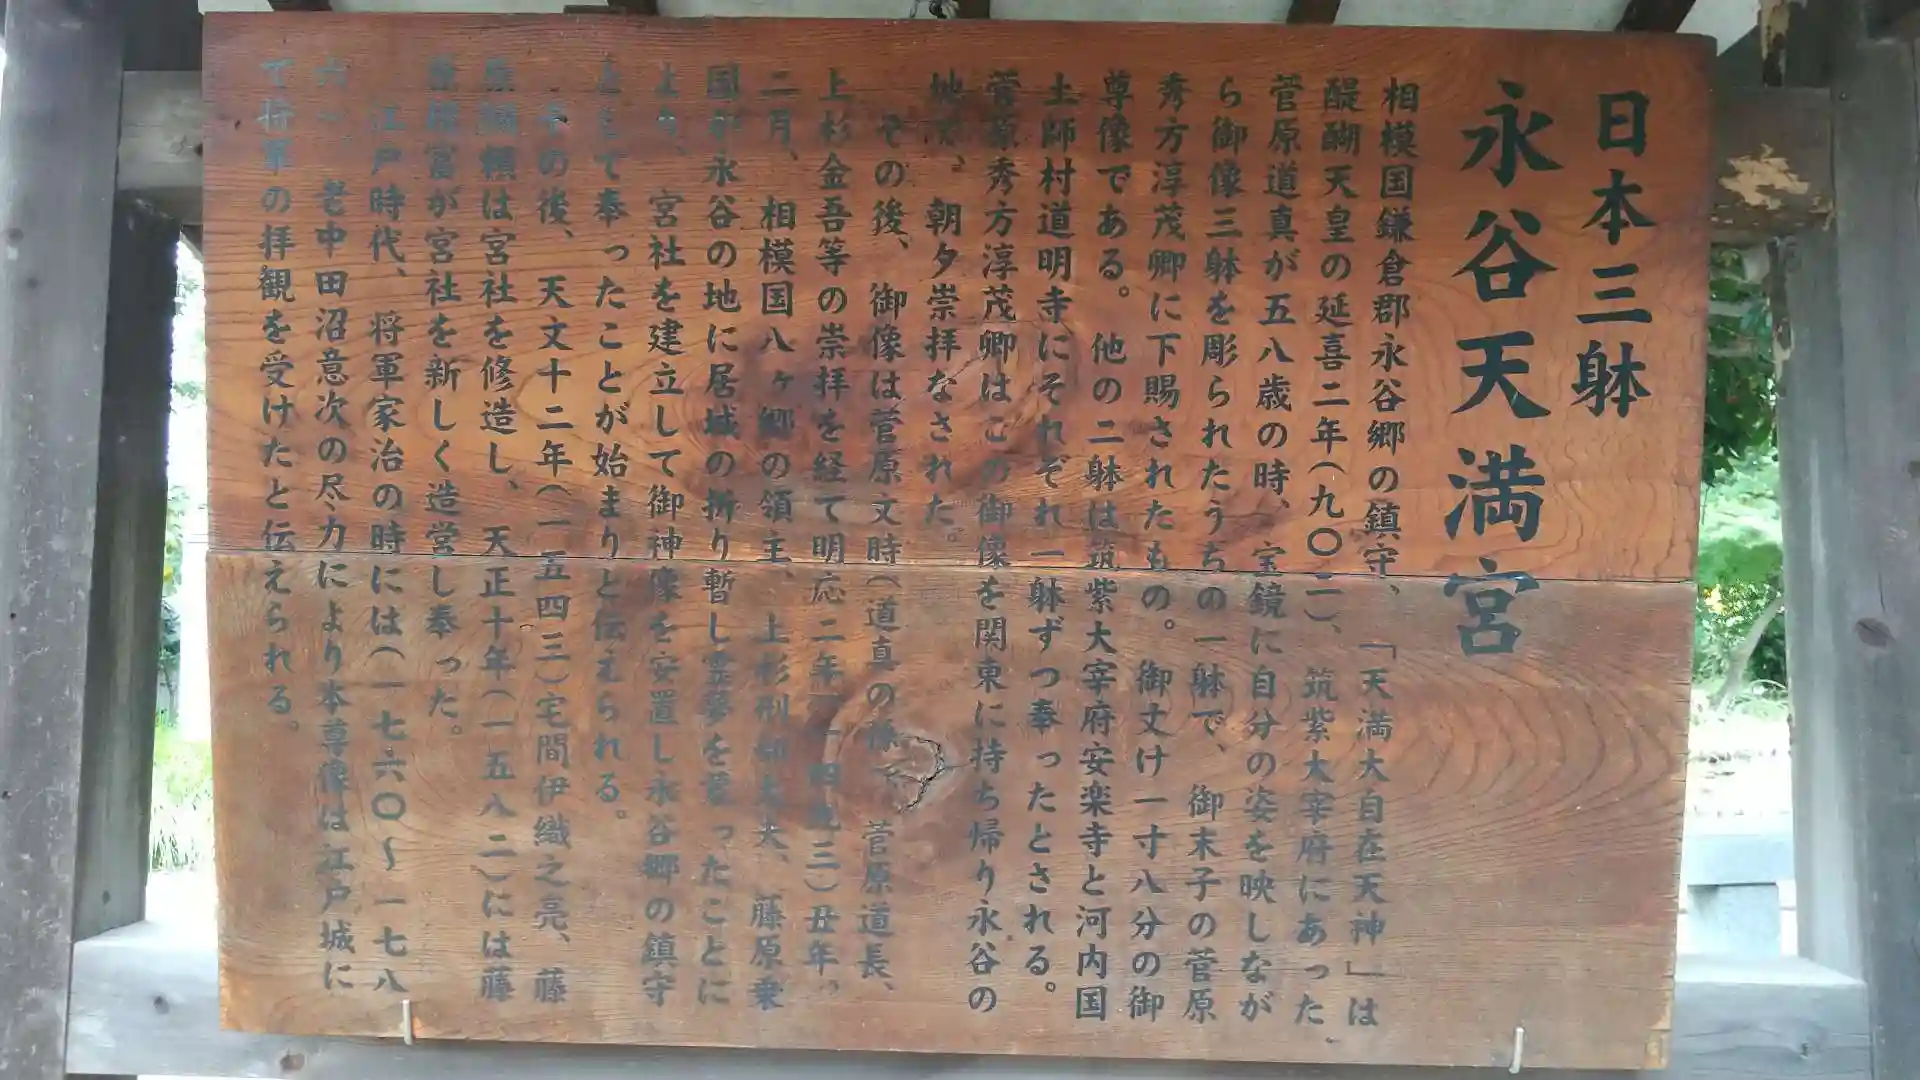 日本三躰
永谷天満宮
相模国鎌倉郡永谷郷の鎮守、「天満大自在天神」は
醍醐天皇の延喜二年(九〇二)、筑紫大宰府にあった、
菅原道真が五八歳の時、宝鏡に自分の姿を映しなが
ら御像三躰を彫られたうちの一躰で、御末子の菅原
秀方淳茂卿に下賜されたもの。御丈け一寸八分の御
尊像である。他の二躰は筑紫大宰府安楽寺と河内国
土師村道明寺にそれぞれ一躰ずつ奉ったとされる。
菅原秀方淳茂卿はこの御像を関東に持ち帰り永谷の
地で、朝夕崇拝なされた。
その後、御像は菅原文時(道真の孫)、菅原道長、
上杉金吾等の崇拝を経て明応二年(一四九三)丑年
二月、相模国八ヶ郷の領主、上杉刑部大夫、藤原乗
国が永谷の地に居城の折り暫し霊夢を蒙ったことに
より、宮社を建立して御神像を安置し永谷郷の鎮守
として奉ったことが始まりと伝えられる。
その後、天文十二年(一五四三)宅間伊織之亮、藤
原綱頼は宮社を修造し、天正十年(一五八二)には藤
原規富が宮社を新しく造営し奉った。
江戸時代、将軍家治の時には(一七六〇〜一七八
六)、老中田沼意次の尽力により本尊像は江戸城に
て将軍の拝観を受けたと伝えられる。